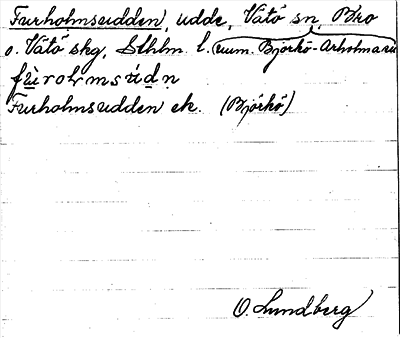 Furholmsudden, udde, Vätö sn, Bro
o. Vätö skg, Sthlm. l. (num. Björkö-Arholma sn
fùrolmsúdn
Furholmsudden ek. (Björkö)
O. Lundberg